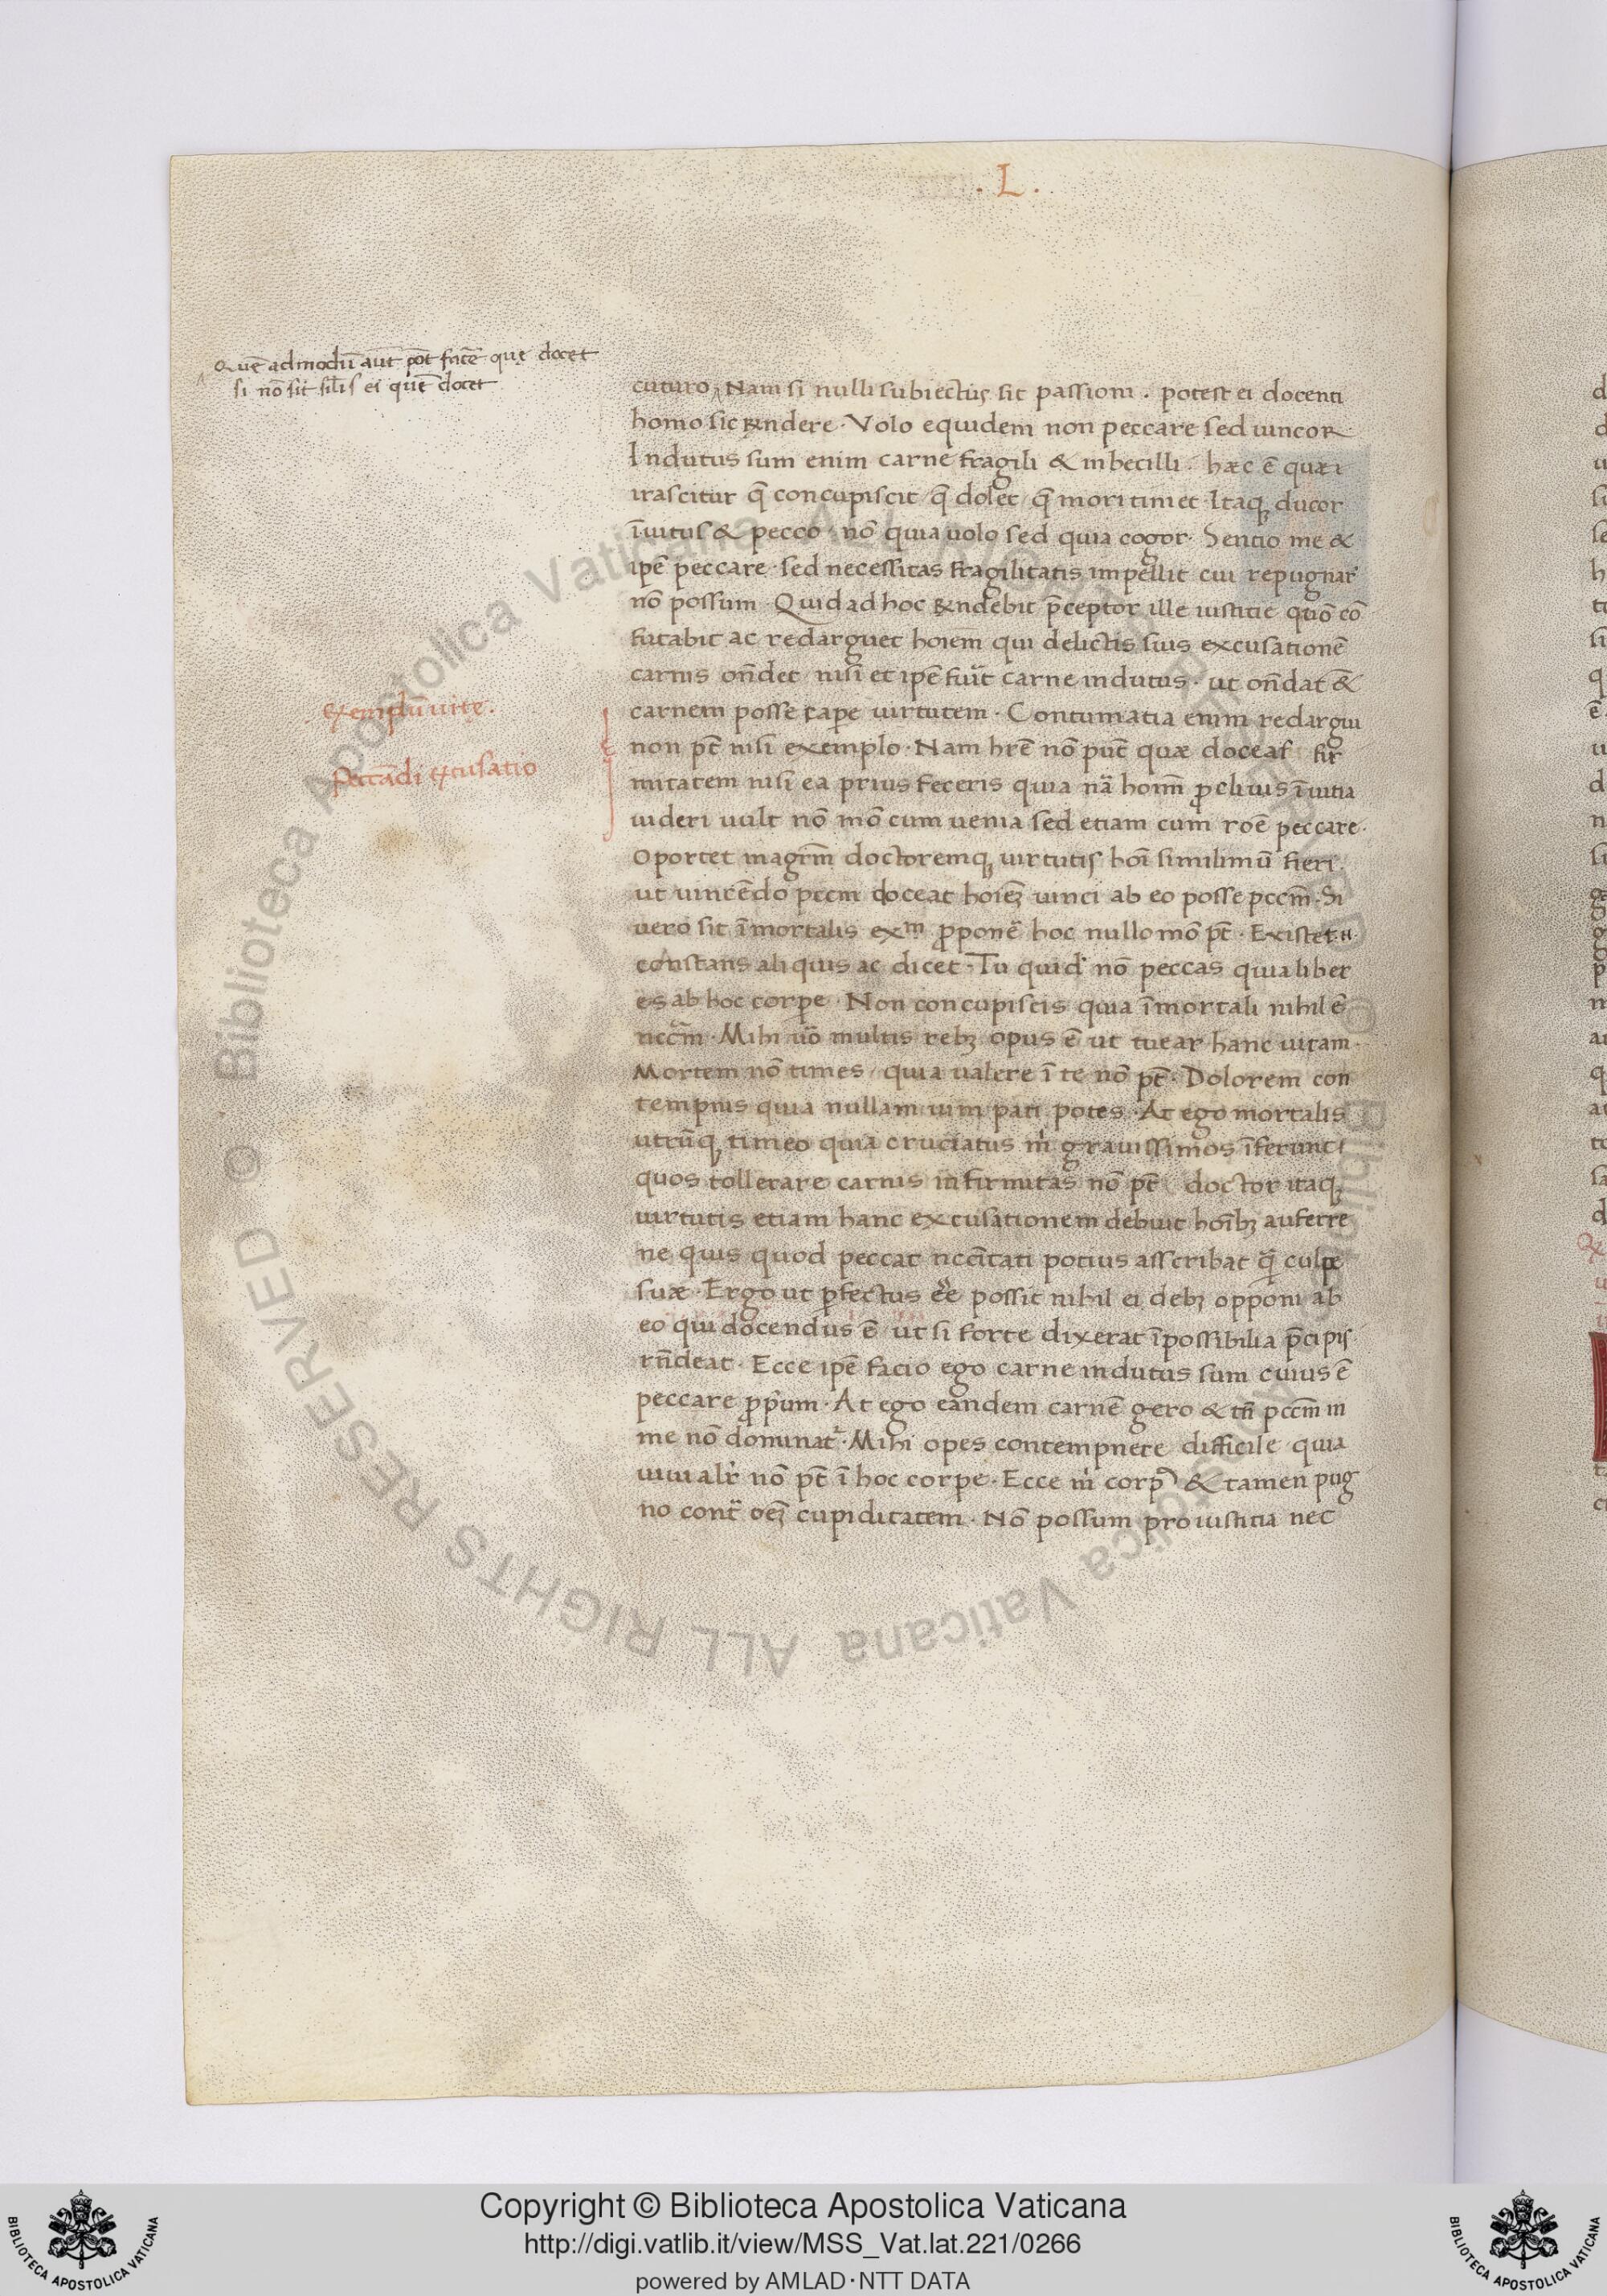 . L .
Quē admodū aut̄ pōt facē quę docet
si nō sit sil̄is ei quē docet
cuturo Nam si nulli subiectus sit passioni . potest ei docenti
homo sic rn̄dere · Volo equidem non peccare sed uincor
Indutus sum enim carne fragili & inbecilli . hæc ē quæ
irascitur q̄ concupiscit / q̄ dolet / q̄ mori timet · Itaq; ducor
īuitus & pecco · nō quia uolo sed quia cogor · Sentio me &
ip̄e peccare · sed necessitas fragilitatis impellit cui repugnar̄
nō possum · Quid ad hoc rn̄debit p̄ceptor ille iustitie quō cō
futabit ac redarguet hoīem qui delictis suis excusationē
carnis on̄det / nisi et ip̄e fuīt carne indutus · ut on̄dat &
carnem posse capere uirtutem · Contumatia enim redargui
exemplū uite .
non pt̄ nisi exemplo · Nam hr̄e nō pn̄t quæ doceas fir
Peccādi excusatio
mitatem nisi ea prius feceris quia nā hoīm p̄cliuis ī uitia
uideri uult nō mō cum uenia sed etiam cum rōe peccare ·
Oportet magr̄m doctoremq; uirtutis hoī similimū fieri .
ut uincēdo pccm doceat hoīez uinci ab eo posse pccm̄ · Si
uero sit īmortalis exᵐ proponē hoc nullo mō pt̄ · Existet n
constans aliquis ac dicet · Tu quid' nō peccas quia liber
es ab hoc corpe · Non concupiscis quia īmortali nihil ē
nccm̄ · Mihi uō multis reb; opus ē ut tuear hanc uitam ·
Mortem nō times / quia ualere ī te nō pt̄ · Dolorem con
tempnis quia nullam uim pati potes · At ego mortalis
utrūq; timeo quia cruciatus m̄ grauissimos īferunt
quos tollerare carnis infirmitas nō pt̄ doctor itaq;
uirtutis etiam hanc excusationem debuit hoīb; auferre
ne quis quod peccat nccītati potius asscribat q̄ culpe
suæ · Ergo ut pfectus ēe possit nihil ei deb; opponi ab
eo qui docendus ē / ut si forte dixerat īpossibilia p̄cipis
rn̄deat · Ecce ip̄e facio ego carne indutus sum cuius ē
peccare pp̄ium · At ego eandem carnē gero & tn̄ pccm̄ in
me nō dominat² · Mihi opes contempnere difficile quia
uiui alr̄ nō pt̄ ī hoc corpe · Ecce m̄ corp' & tamen pug
no cont̄ oēz cupiditatem · Nō possum pro iustitia nec
Copyright © Biblioteca Apostolica Vaticana
http://digi.vatlib.it/view/MSS_Vat.lat.221/0266
powered by AMLAD·NTT DATA